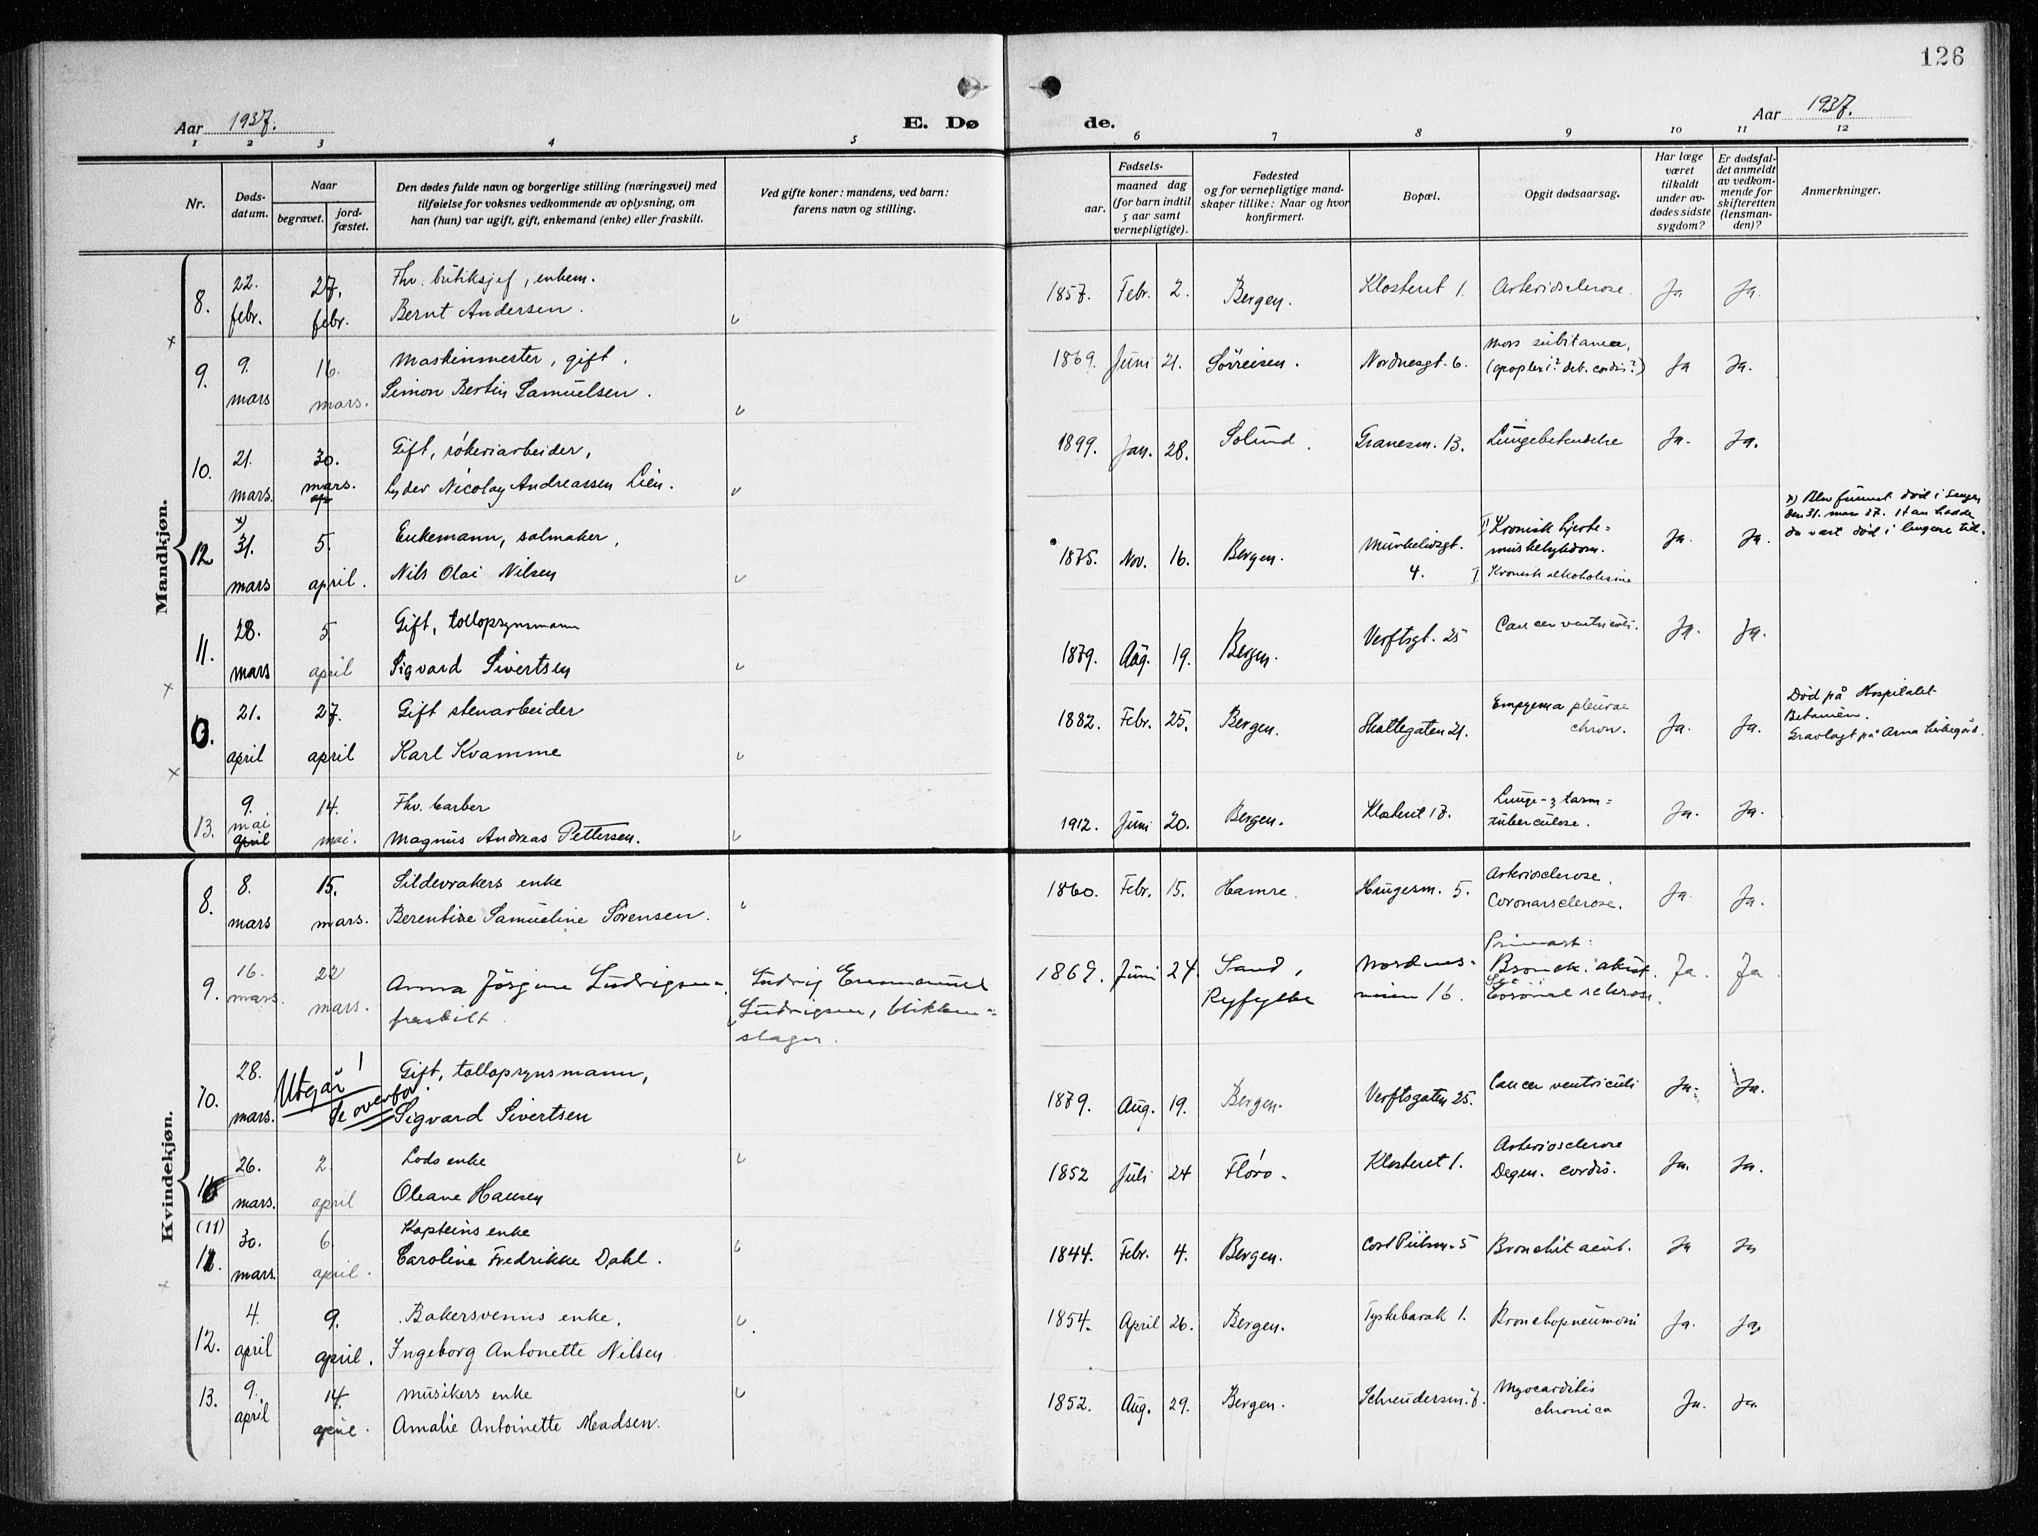 126
Aar 1937.
E. Dø
de.
Aar 1937.
1 2 3 4 5 6 7 8 9 10 11 12
Nr.
Døds-
datum.
Naar
begravet.
jord-
fæstet.
Den dødes fulde navn og borgerlige stilling (næringsvei) med
tilføielse for voksnes vedkommende av oplysning, om
han (hun) var ugift, gift, enkemand (enke) eller fraskilt.
Ved gifte koner: mandens, ved barn:
farens navn og stilling.
Fødsels-
aar.
maaned dag
(for barn indtil
5 aar samt
vernepligtige).
Fødested
og for vernepligtige mand-
skaper tillike: Naar og hvor
konfirmert.
Bopæl.
Opgit dødsaarsag.
Har læge
været
tilkaldt
under av-
dødes sidste
sygdom?
Er dødsfal-
det anmeldt
av vedkom-
mende for
skifteretten
(lensman-
den)?
Anmerkninger.
Mandkjøn.
8. 22. febr. 27. febr. Fhv. butiksjef, enkem.
Bernt Andersen.
1857. Febr. 2. Bergen. Klosteret 1. Arteriosclerose. Ja Ja.
9. 9. mars 16. mars. Maskinmester, gift.
Simon Bertin Samuelsen.
1869. Juni 21. Sørreisen. Nordnesgt. 6. Mors subitanea,
(apoplexi? deb. cordis?) Ja Ja.
10. 21. mars. 30. mars. Gift, røkeriarbeider,
Lyder Nicolay Andreassen Lien.
1899. Jan. 28. Solund. Granesm. 13. Lungebetendelse Ja. Ja.
12 x) 31. mars 5. april. Enkemann, salmaker,
Nils Olai Nilsen
1875. Nov. 16. Bergen. Murhelvdgt.
4. II Kronisk hjerte-
muskelsykdom.
I Kronisk alkoholisme Ja. Ja. x) Blev funnet død i sengen
den 31. mars 37. Han hadde
da vært død i lengere tid.
11. 28. mars 5 april Gift, tollopsynsmann
Sigvard Sivertsen
1879. Aug. 19. Bergen. Verftsgt. 25 Cancer ventriculi. Ja. Ja.
0. 21. april 27. april Gift stenarbeider
Karl Kvamme
1882. Febr. 25. Bergen. Skottegaten 21. Empyema pleurae
chron. Ja. Ja. Død på Hospitalet
Betanien.
Gravlagt på Arna kirkegård.
13. 9. mai april 14. mai. Fhv. barber
Magnus Andreas Pettersen.
1912. Juni 20. Bergen. Klosteret 17. Lunge- & tarm=
tuberculose. Ja. Ja.
Kvindekjøn.
8. 8. mars 15. mars. Sildevrakers enke
Berentine Samueline Sørensen.
1860. Febr. 15. Hamre. Haugesm. 5. Arteriosclerose.
Coronarsclerose. Ja. Ja.
9. 16. mars. 22 mars. Anna Jørgine Ludvigsen,
fraskilt. Ludvig Emmanuel
Ludvigsen, blikken-
slager.
1869. Juni 24. Sand,
Ryfylke Nordnes-
veien 16. Primært:
Bronch. akut.
Coronal sclerose. Ja. Ja
10. 28. mars. Utgår!
Se overfor. Gift, tollopsynsmann,
Sigvard Sivertsen
1879. Aug. 19. Bergen. Verftsgaten 25. Cancer ventriculi Ja. Ja.
26. mars. 2. april Lods enke
Oleane Hansen
1852 Juli 24 Florø. Klosteret 1. Arteriosclerose
Degen. cordis. Ja. Ja.
(11)
30. mars. 6. april. Kapteins enke
Caroline Fredrikke Dahl.
1844. Febr. 4. Bergen. Cort Piilsm. 5 Bronchit acut. Ja Ja
12. 4. april 9. april. Bakersvenns enke,
Ingeborg Antonette Nilsen
1854. April 26. Bergen. Tyskebarak 1. Bronchopneumoni Ja. Ja,
13. 9. april 14. april. Musikers enke
Amalie Antoinette Madsen.
1852. Aug. 29. Bergen. Schreudersm. 7. Myocarditis
chronica Ja. Ja